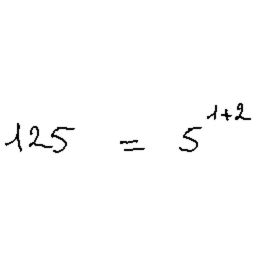 125 = 5^{1+2}